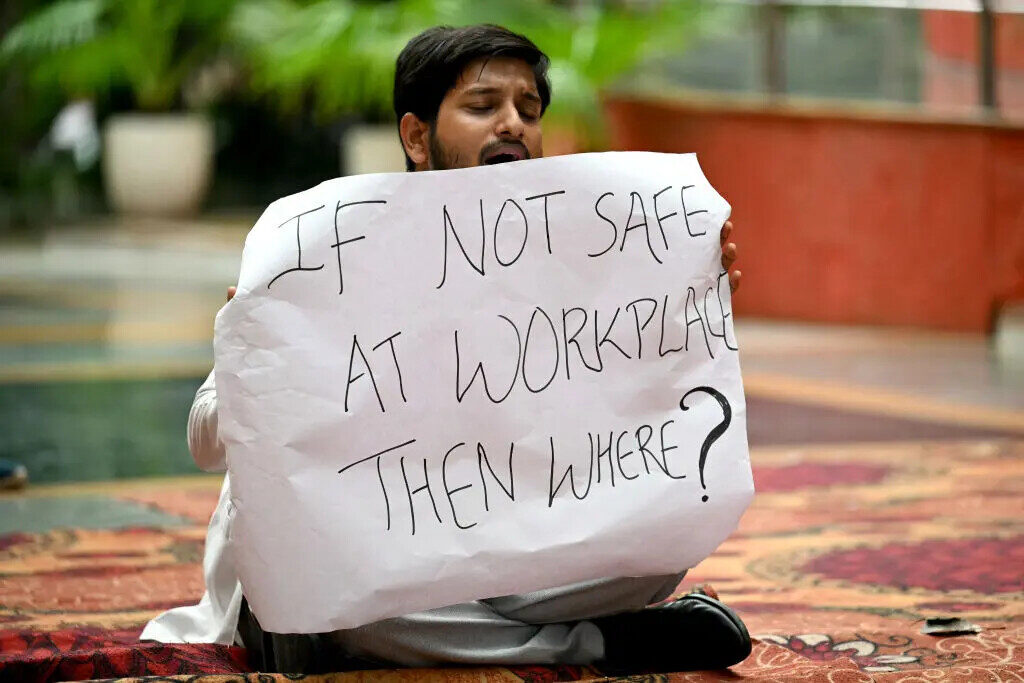 IF NOT SAFE
AT WORKPLACE
THEN WHERE?